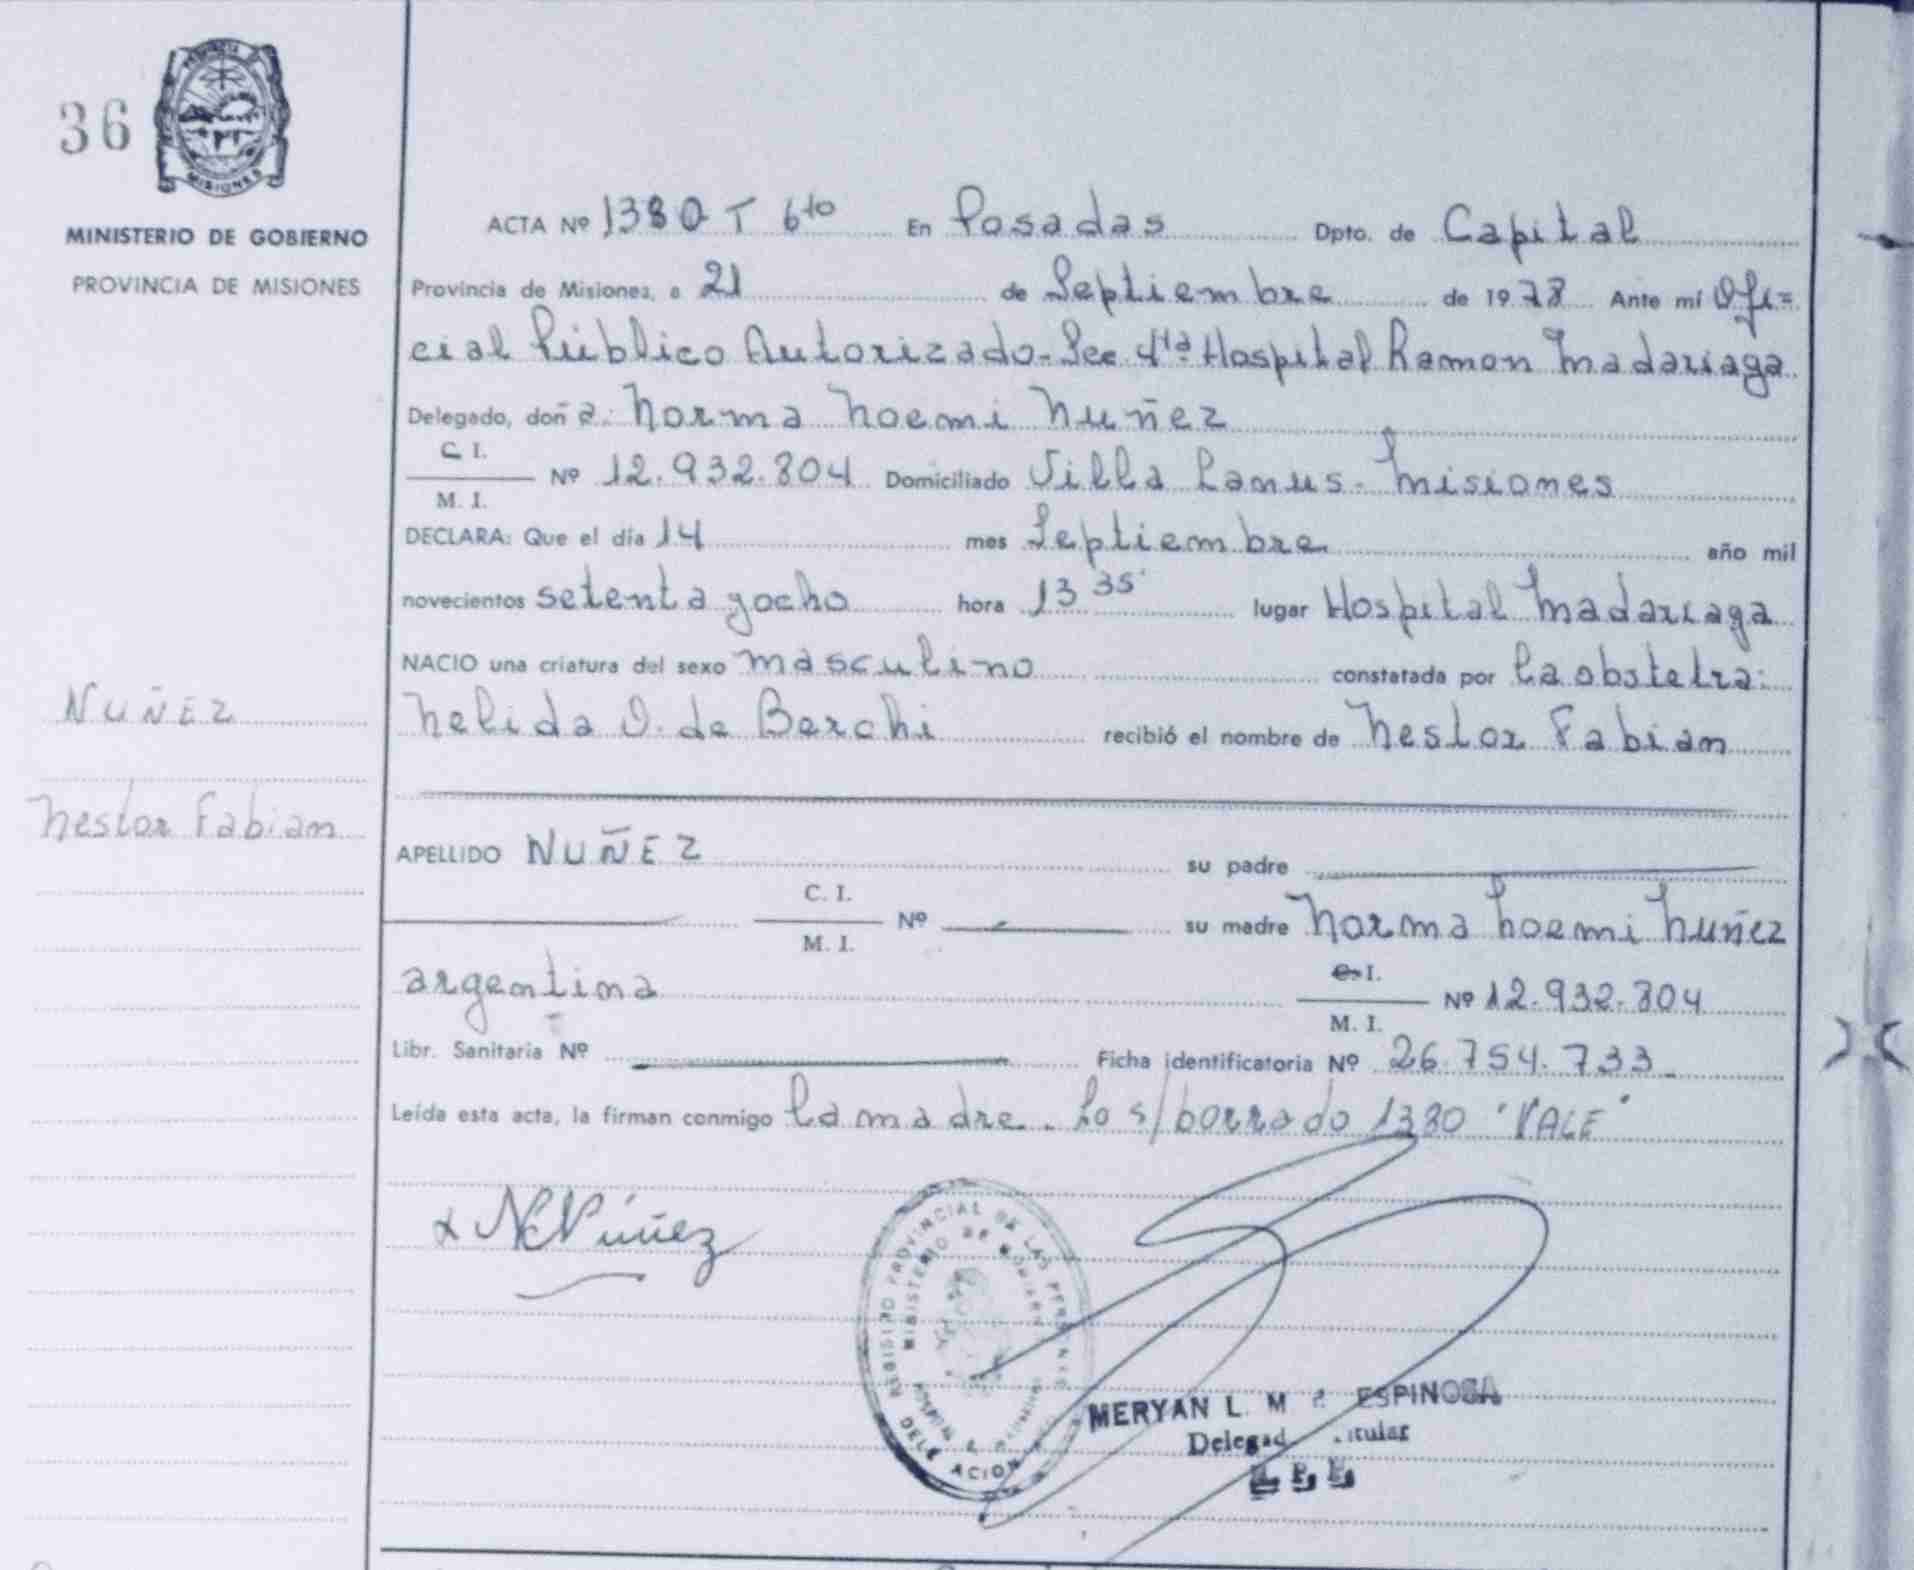 36
PROVINCIA
MISIONES
MINISTERIO DE GOBIERNO
PROVINCIA DE MISIONES
NUÑEZ
Nestor Fabian
ACTA Nº 1380 T 6to En Posadas Dpto. de Capital
Provincia de Misiones, a 21 de Septiembre de 1978 Ante mí Ofi=
cial Público Autorizado-Sec 4ta Hospital Ramon Madariaga
Delegado, doña: Norma Noemi Nuñez
C I.
M. I.
Nº 12.932.804 Domiciliado Villa Lanus- Misiones
DECLARA: Que el día 14 mes Septiembre año mil
novecientos setenta yocho hora 13 35' lugar Hospital Madariaga
NACIO una criatura del sexo masculino constatada por la obstetra:
Nelida O. de Berchi recibió el nombre de Nestor Fabian
APELLIDO NUÑEZ su padre
C. I.
M. I.
Nº su madre Norma Noemi Nuñez
argentina C. I.
M. I.
Nº 12.932.804
Libr. Sanitaria Nº Ficha identificatoria Nº 26.754.733
Leída esta acta, la firman conmigo la madre. Lo s/borrado 1380 "VALE"
N Núñez
REGISTRO PROVINCIAL DE LAS PERSONAS
MINISTERIO DE GOBIERNO
MERYAN L. M ESPINOSA